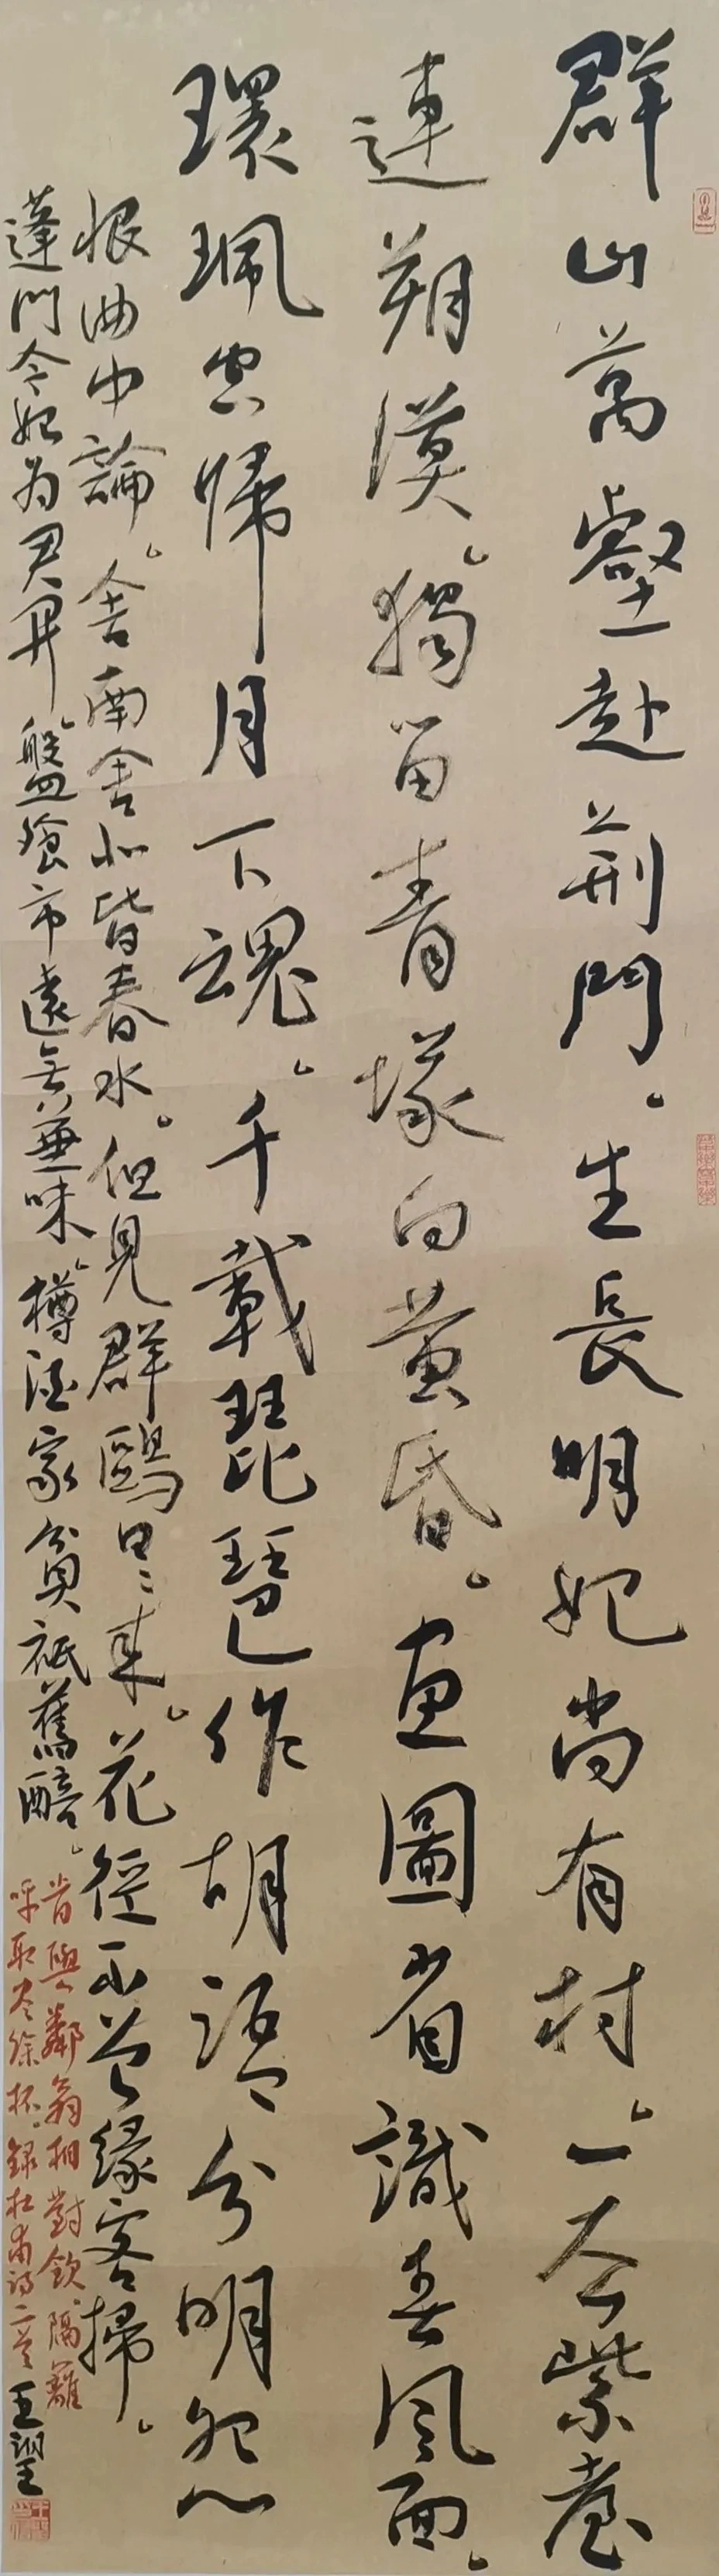 群山萬壑赴荆門。生長明妃尚有村。一去紫臺
連朔漠。獨留青塚向黄昏。畫圖省識春風面。
環珮空歸月下魂。千載琵琶作胡語分明怨
恨曲中論。舍南舍北皆春水。但見群鷗日〻來。花徑不曾緣客掃。
蓬門今始為君開。盤飧市遠無兼味。樽酒家貧祇舊醅。
肯與鄰翁相對飲。隔籬
呼取盡餘杯。録杜甫詩二首 王